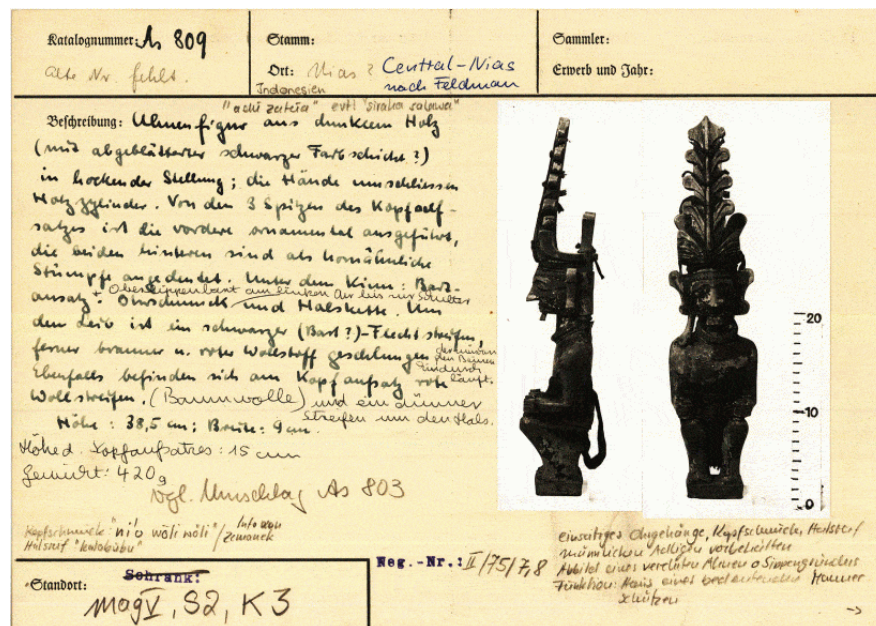 Katalognummer: As 809
Alte Nr. fehlt.
Stamm:
Ort: Nias? Central-Nias
Indonesien nach Feldman
Sammler:
Erwerb und Jahr:
"adu zatua" evtl "siraha salawa"
Beschreibung: Ahnenfigur aus dunklem Holz
(mit abgeblätterter schwarzer Farbschicht?)
in hockender Stellung; die Hände umschliessen
Holzzylinder. Von den 3 Spitzen des Kopfauf-
satzes ist die vordere ornamental ausgeführt,
die beiden hinteren sind als hornähnliche
Stümpfe angedeutet. Unter dem Kinn: Bart-
+ Oberlippenbart am linken Ohr bis zur Schulter
ansatz. Ohrschmuck und Halskette. Um
den Leib ist ein schwarzer (Bast?)-Flechtstreifen,
ferner brauner u. roter Wollstoff geschlungen,
der zwischen den Beinen hindurch läuft.
Ebenfalls befinden sich am Kopfaufsatz rote
Wollstreifen. (Baumwolle) und ein dünner
Streifen um den Hals.
Höhe: 38,5 cm; Breite: 9 cm.
Höhe d. Kopfaufsatzes: 15 cm
Gewicht: 420 g
Vgl. Umschlag As 803
Kopfschmuck "ni'o wöli wöli" / Info von
Halsreif "kalabubu" Zemanek
20
10
0
Neg.-Nr.: II/75/7,8
einseitiges Ohrgehänge, Kopfschmuck, Halsreif
männlichen Adligen vorbehalten
Abbild eines verehrten Ahnen o Sippengründers
Funktion: Haus eines bedeutenden Mannes
schützen
->
Standort:
Schrank:
Mag V, S2, K3